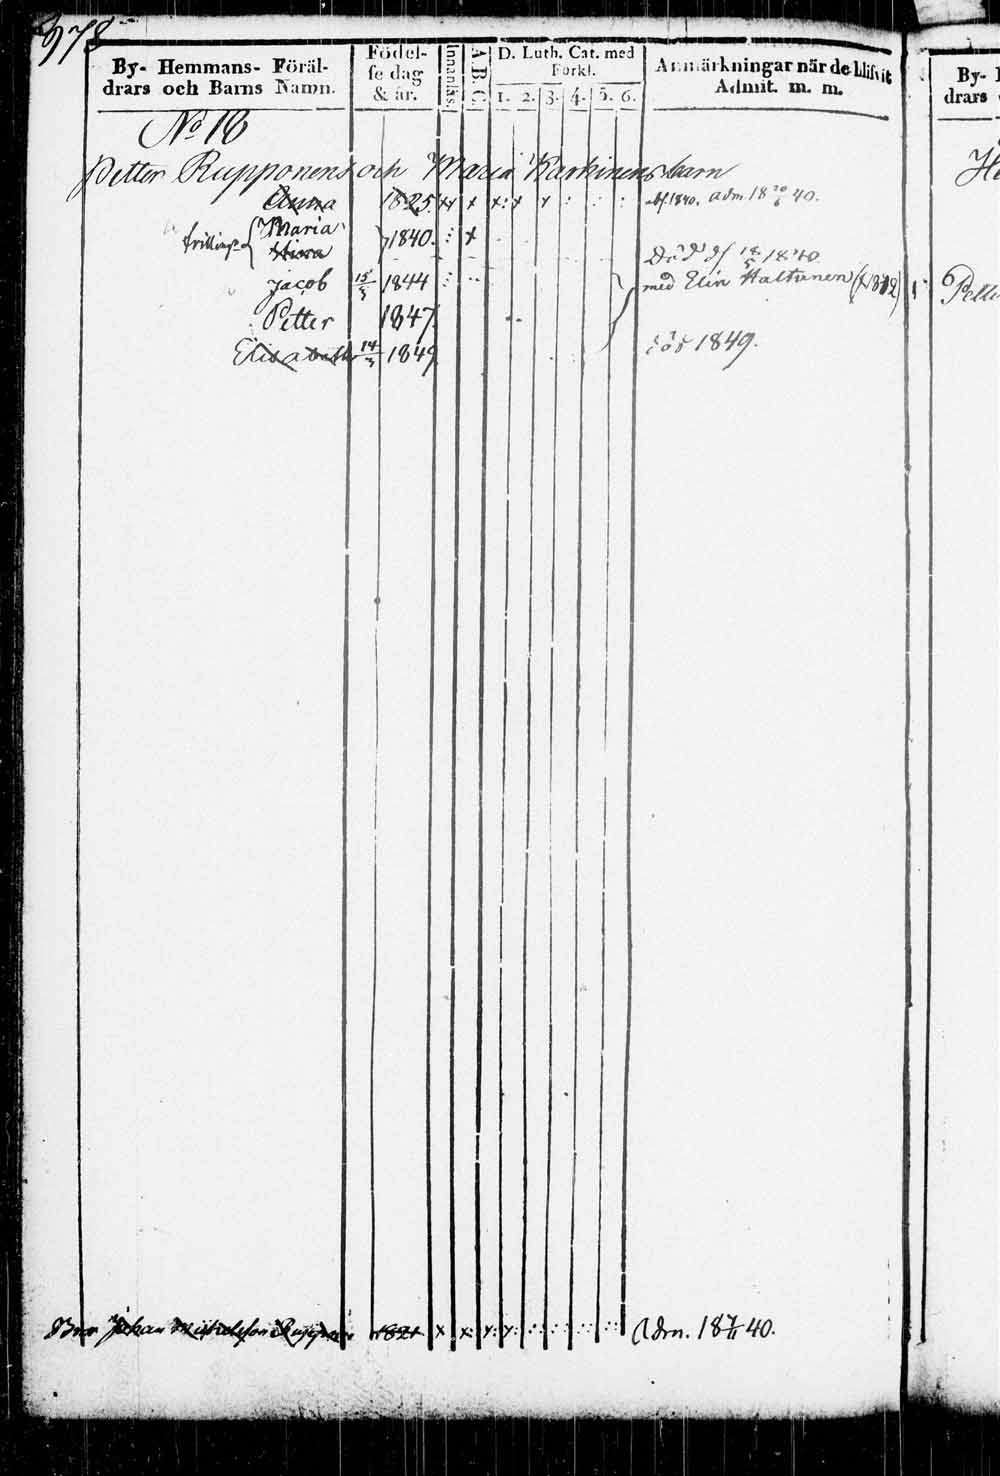 978
By- Hemmans- Föräl-
drars och Barns Namn.
Födel-
se dag
& år.
Innanläs.
A B C.
D. Luth. Cat. med
Förkl.
1. 2. 3. 4. 5. 6.
Anmärkningar när de blifvit
Admit. m. m.
No 18
Petter Rupponens och Maria Karhinens barn
Anna 1825. x x x x: x x adm 18 20/6 40.
Maria 1840. x
Stina
Död d 1840
Jacob 15/3 1844 med Elin (f 1842)
Petter 1847.
Elisabeth 14/3 1849 död 1849.
Bror Johan Michelsson Rupponen 1821 x x: x: x: Adm. 18 40.
By-
drars